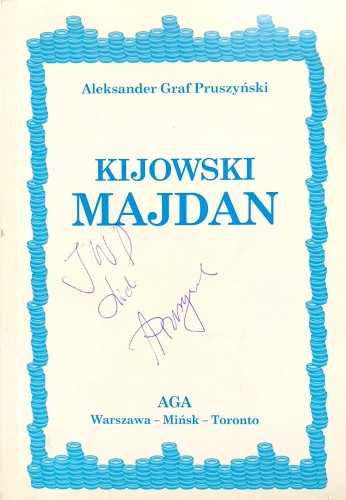 Aleksander Graf Pruszyński
KIJOWSKI
MAJDAN
AGA
Warszawa – Mińsk – Toronto